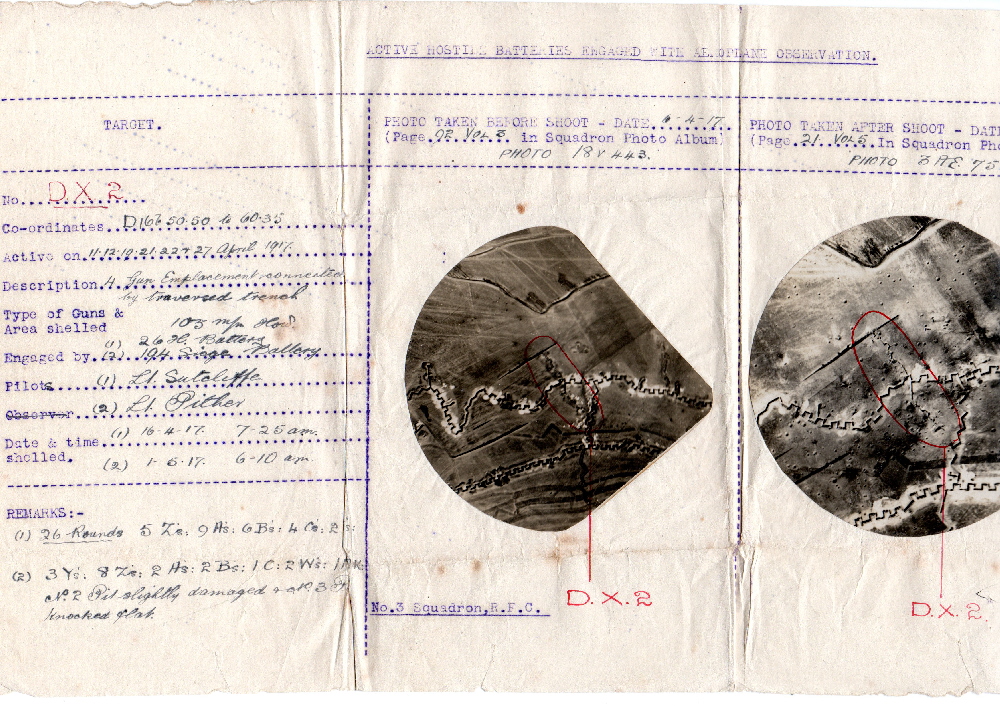 ACTIVE HOSTILE BATTERIES ENGAGED WITH AEROPLANE OBSERVATION.
TARGET.
No. D.X.2
Co-ordinates D16b 50.50 to 60.35
Active on 11.12.19.21.22 & 27 April 1917.
Description 4 Gun Emplacement connected
by traversed trench
Type of Guns &
Area shelled
105 m/m How.
Engaged by (1) 26 H. Battery
(2) 194 Siege Battery
Pilots (1) Lt. Sutcliffe
Observer (2) Lt. Pither
Date & time
shelled.
(1) 16-4-17. 7-25 am.
(2) 1-5-17. 6-10 am.
REMARKS:-
(1) 26 Rounds 5 Zs: 9 As: 6 Bs: 4 Cs: 2
(2) 3 Ys: 8 Zs: 2 As: 2 Bs: 1 C: 2 Ws: 1
No 2 Pit slightly damaged & No 3
knocked flat.
PHOTO TAKEN BEFORE SHOOT - DATE -4-17.
(Page 92 Vol 3. in Squadron Photo Album)
PHOTO 18 V 443.
D.X.2
No.3 Squadron, R.F.C.
PHOTO TAKEN AFTER SHOOT - DATE
(Page 21 Vol 5. In Squadron Pho
PHOTO 3 AE 75
D.X.2.